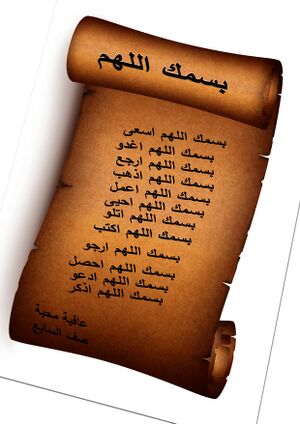 بسمك اللهم
بسمك اللهم اسعى
بسمك اللهم اغدو
بسمك اللهم ارجع
بسمك اللهم اذهب
بسمك اللهم اعمل
بسمك اللهم احيى
بسمك اللهم اتلو
بسمك اللهم اكتب
بسمك اللهم ارجو
بسمك اللهم احصل
بسمك اللهم ادعو
بسمك اللهم اذكر
عافية محبة
صف السابع